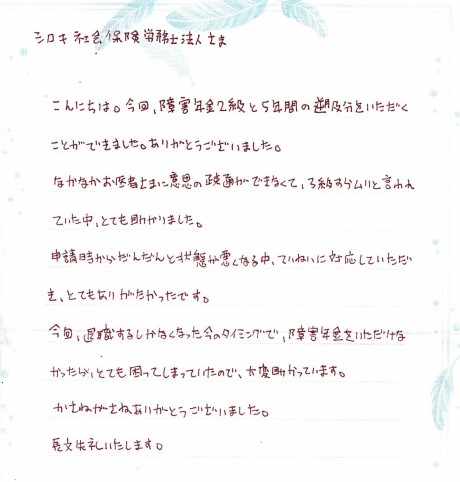 シロキ社会保険労務士法人さま
こんにちは。今回、障害年金2級と5年間の遡及分をいただく
ことができました。ありがとうございました。
なかなかお医者さまに意思の疎通ができなくて、3級すらムリと言われ
ていた中、とても助かりました。
申請時からだんだんと状態が悪くなる中、ていねいに対応していただ
き、とてもありがたかったです。
今回、退職するしかなくなった今のタイミングで、障害年金をいただけな
かったら、とても困ってしまっていたので、大変助かっています。
かさねがさねありがとうございました。
長文失礼いたします。